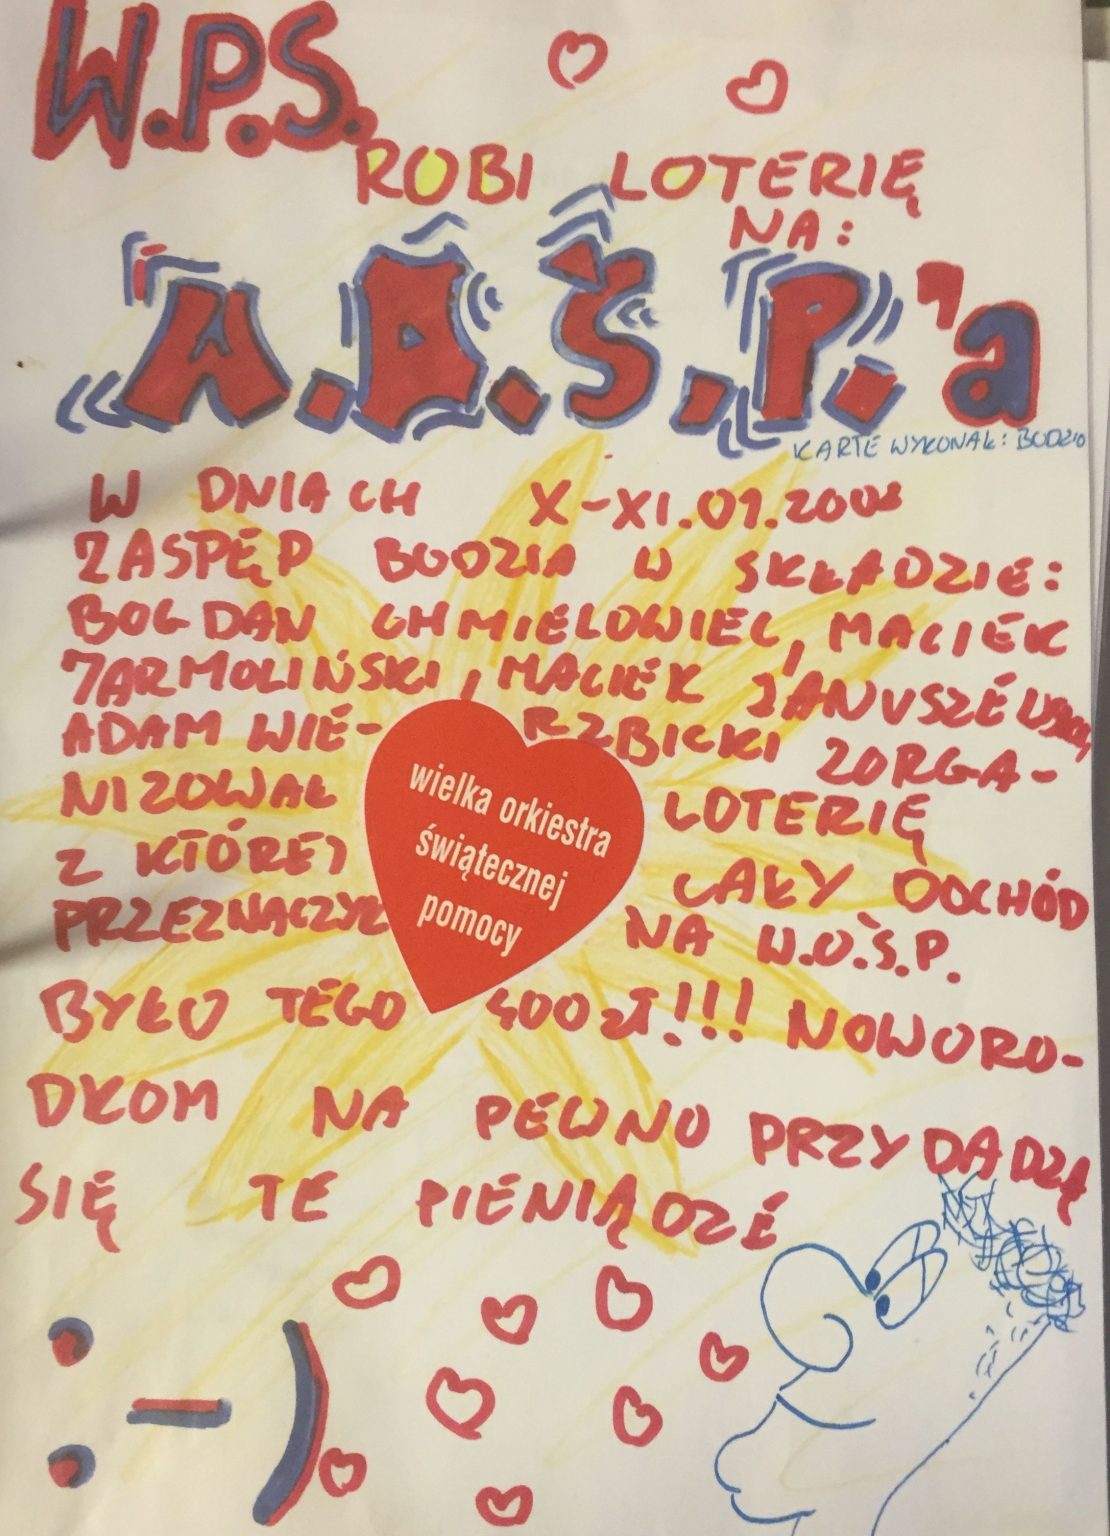 W.P.S.
ROBI LOTERIĘ
NA:
W.O.Ś.P.'a
KARTE WYKONAŁ: BODZIO
W DNIACH X-XI.01.200
ZASPĘP BODZIA W SKŁADZIE:
BOGDAN CHMIELOWIEC, MACIEK
JARMOLIŃSKI, MACIEK JANUSZEWSKI,
ADAM WIE- RZBICKI ZORGA-
NIZOWAŁ LOTERIĘ
Z KTÓREJ CAŁY DOCHÓD
PRZEZNACZYŁ NA W.O.Ś.P.
BYŁO TEGO 400 zł!!! NOWORO-
DKOM NA PEWNO PRZYDADZĄ
SIĘ TE PIENIĄDZE
:-)
wielka orkiestra
świątecznej
pomocy